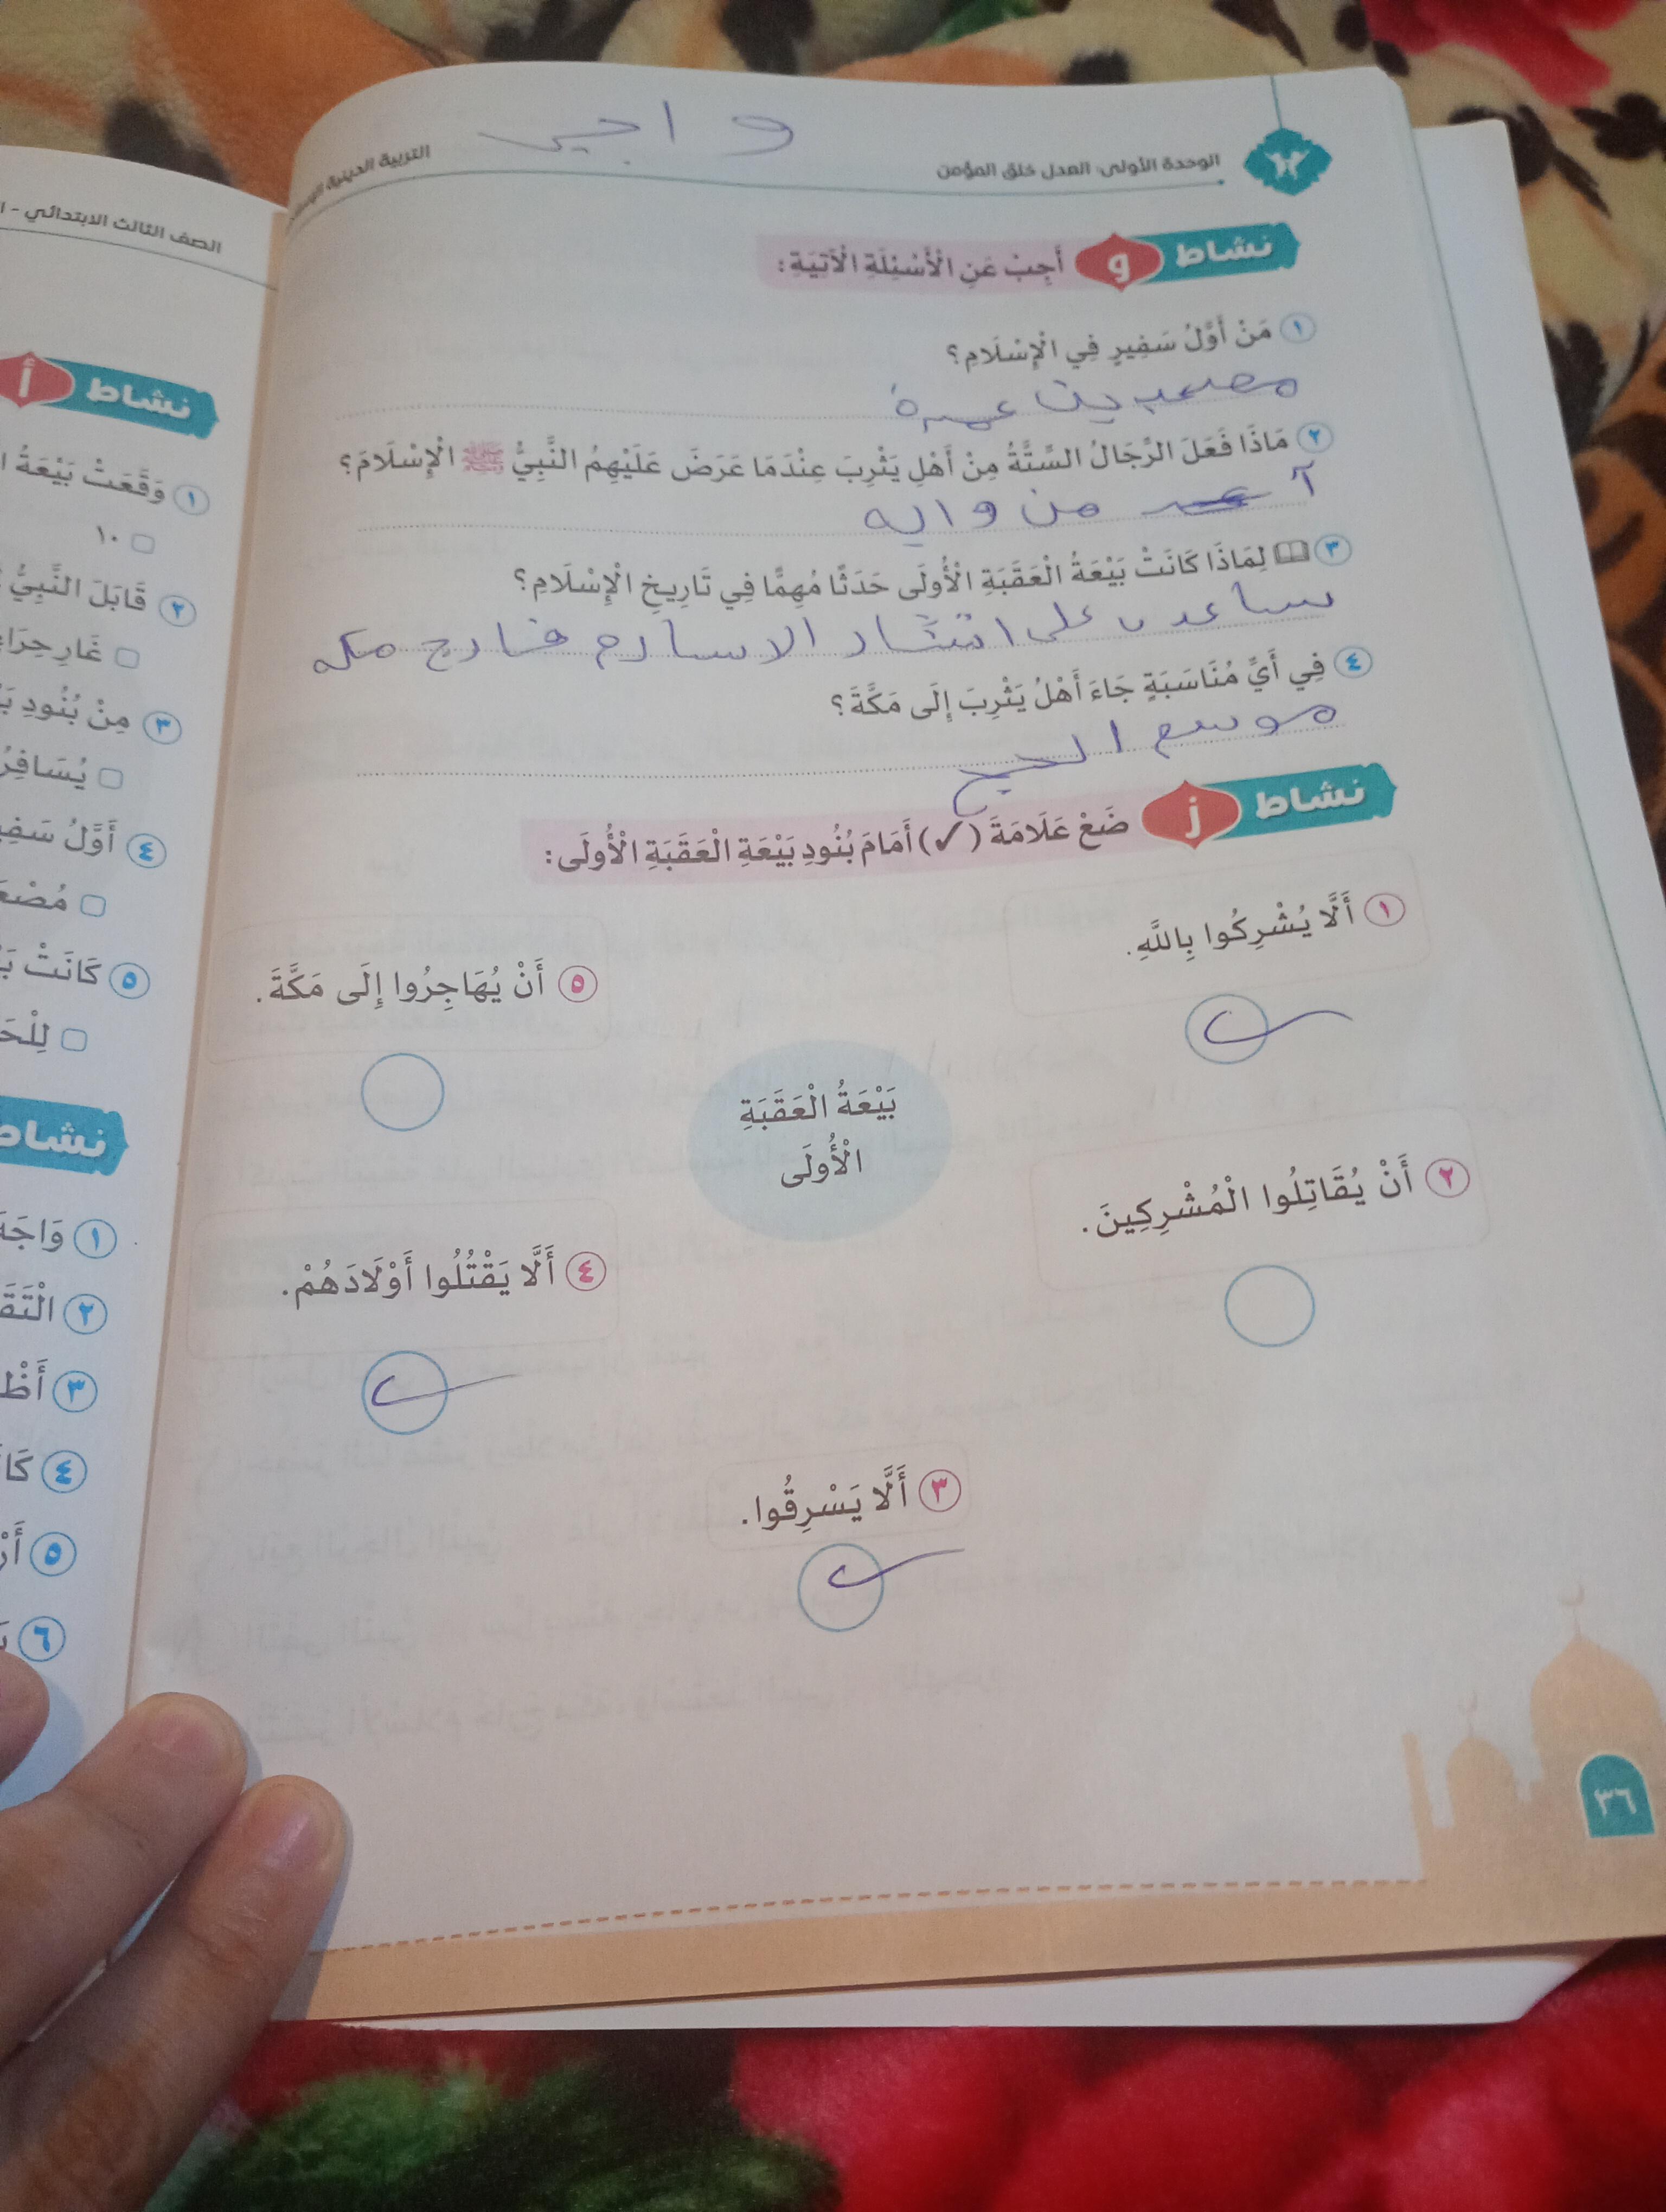 واجب
الوحدة الأولى: العدل خلق المؤمن
التربية الدينية
نشاط و أَجِبْ عَنِ الْأَسْئِلَةِ الْآتِيَةِ:
١ مَنْ أَوَّلُ سَفِيرٍ فِي الْإِسْلَامِ؟
مصعب بن
٢ مَاذَا فَعَلَ الرِّجَالُ السِّتَّةُ مِنْ أَهْلِ يَثْرِبَ عِنْدَمَا عَرَضَ عَلَيْهِمُ النَّبِيُّ ﷺ الْإِسْلَامَ؟
٣ لِمَاذَا كَانَتْ بَيْعَةُ الْعَقَبَةِ الْأُولَى حَدَثًا مُهِمًّا فِي تَارِيخِ الْإِسْلَامِ؟
على انتشار الاسلام خارج مكه
٤ فِي أَيِّ مُنَاسَبَةٍ جَاءَ أَهْلُ يَثْرِبَ إِلَى مَكَّةَ؟
موسم الحج
نشاط ز ضَعْ عَلَامَةَ (✓) أَمَامَ بُنُودِ بَيْعَةِ الْعَقَبَةِ الْأُولَى:
١ أَلَّا يُشْرِكُوا بِاللَّهِ.
٥ أَنْ يُهَاجِرُوا إِلَى مَكَّةَ.
بَيْعَةُ الْعَقَبَةِ
الْأُولَى
٢ أَنْ يُقَاتِلُوا الْمُشْرِكِينَ.
٤ أَلَّا يَقْتُلُوا أَوْلَادَهُمْ.
٣ أَلَّا يَسْرِقُوا.
٣٦
الصف الثالث الابتدائي -
نشاط أ
١ وَقَعَتْ بَيْعَةُ
١٠
٢ قَابَلَ النَّبِيُّ
غَارِ حِرَاءَ
٣ مِنْ بُنُودِ
٤ أَوَّلُ
٥ كَانَتْ
نشاط
١
٢
٣
٤
٥
٦